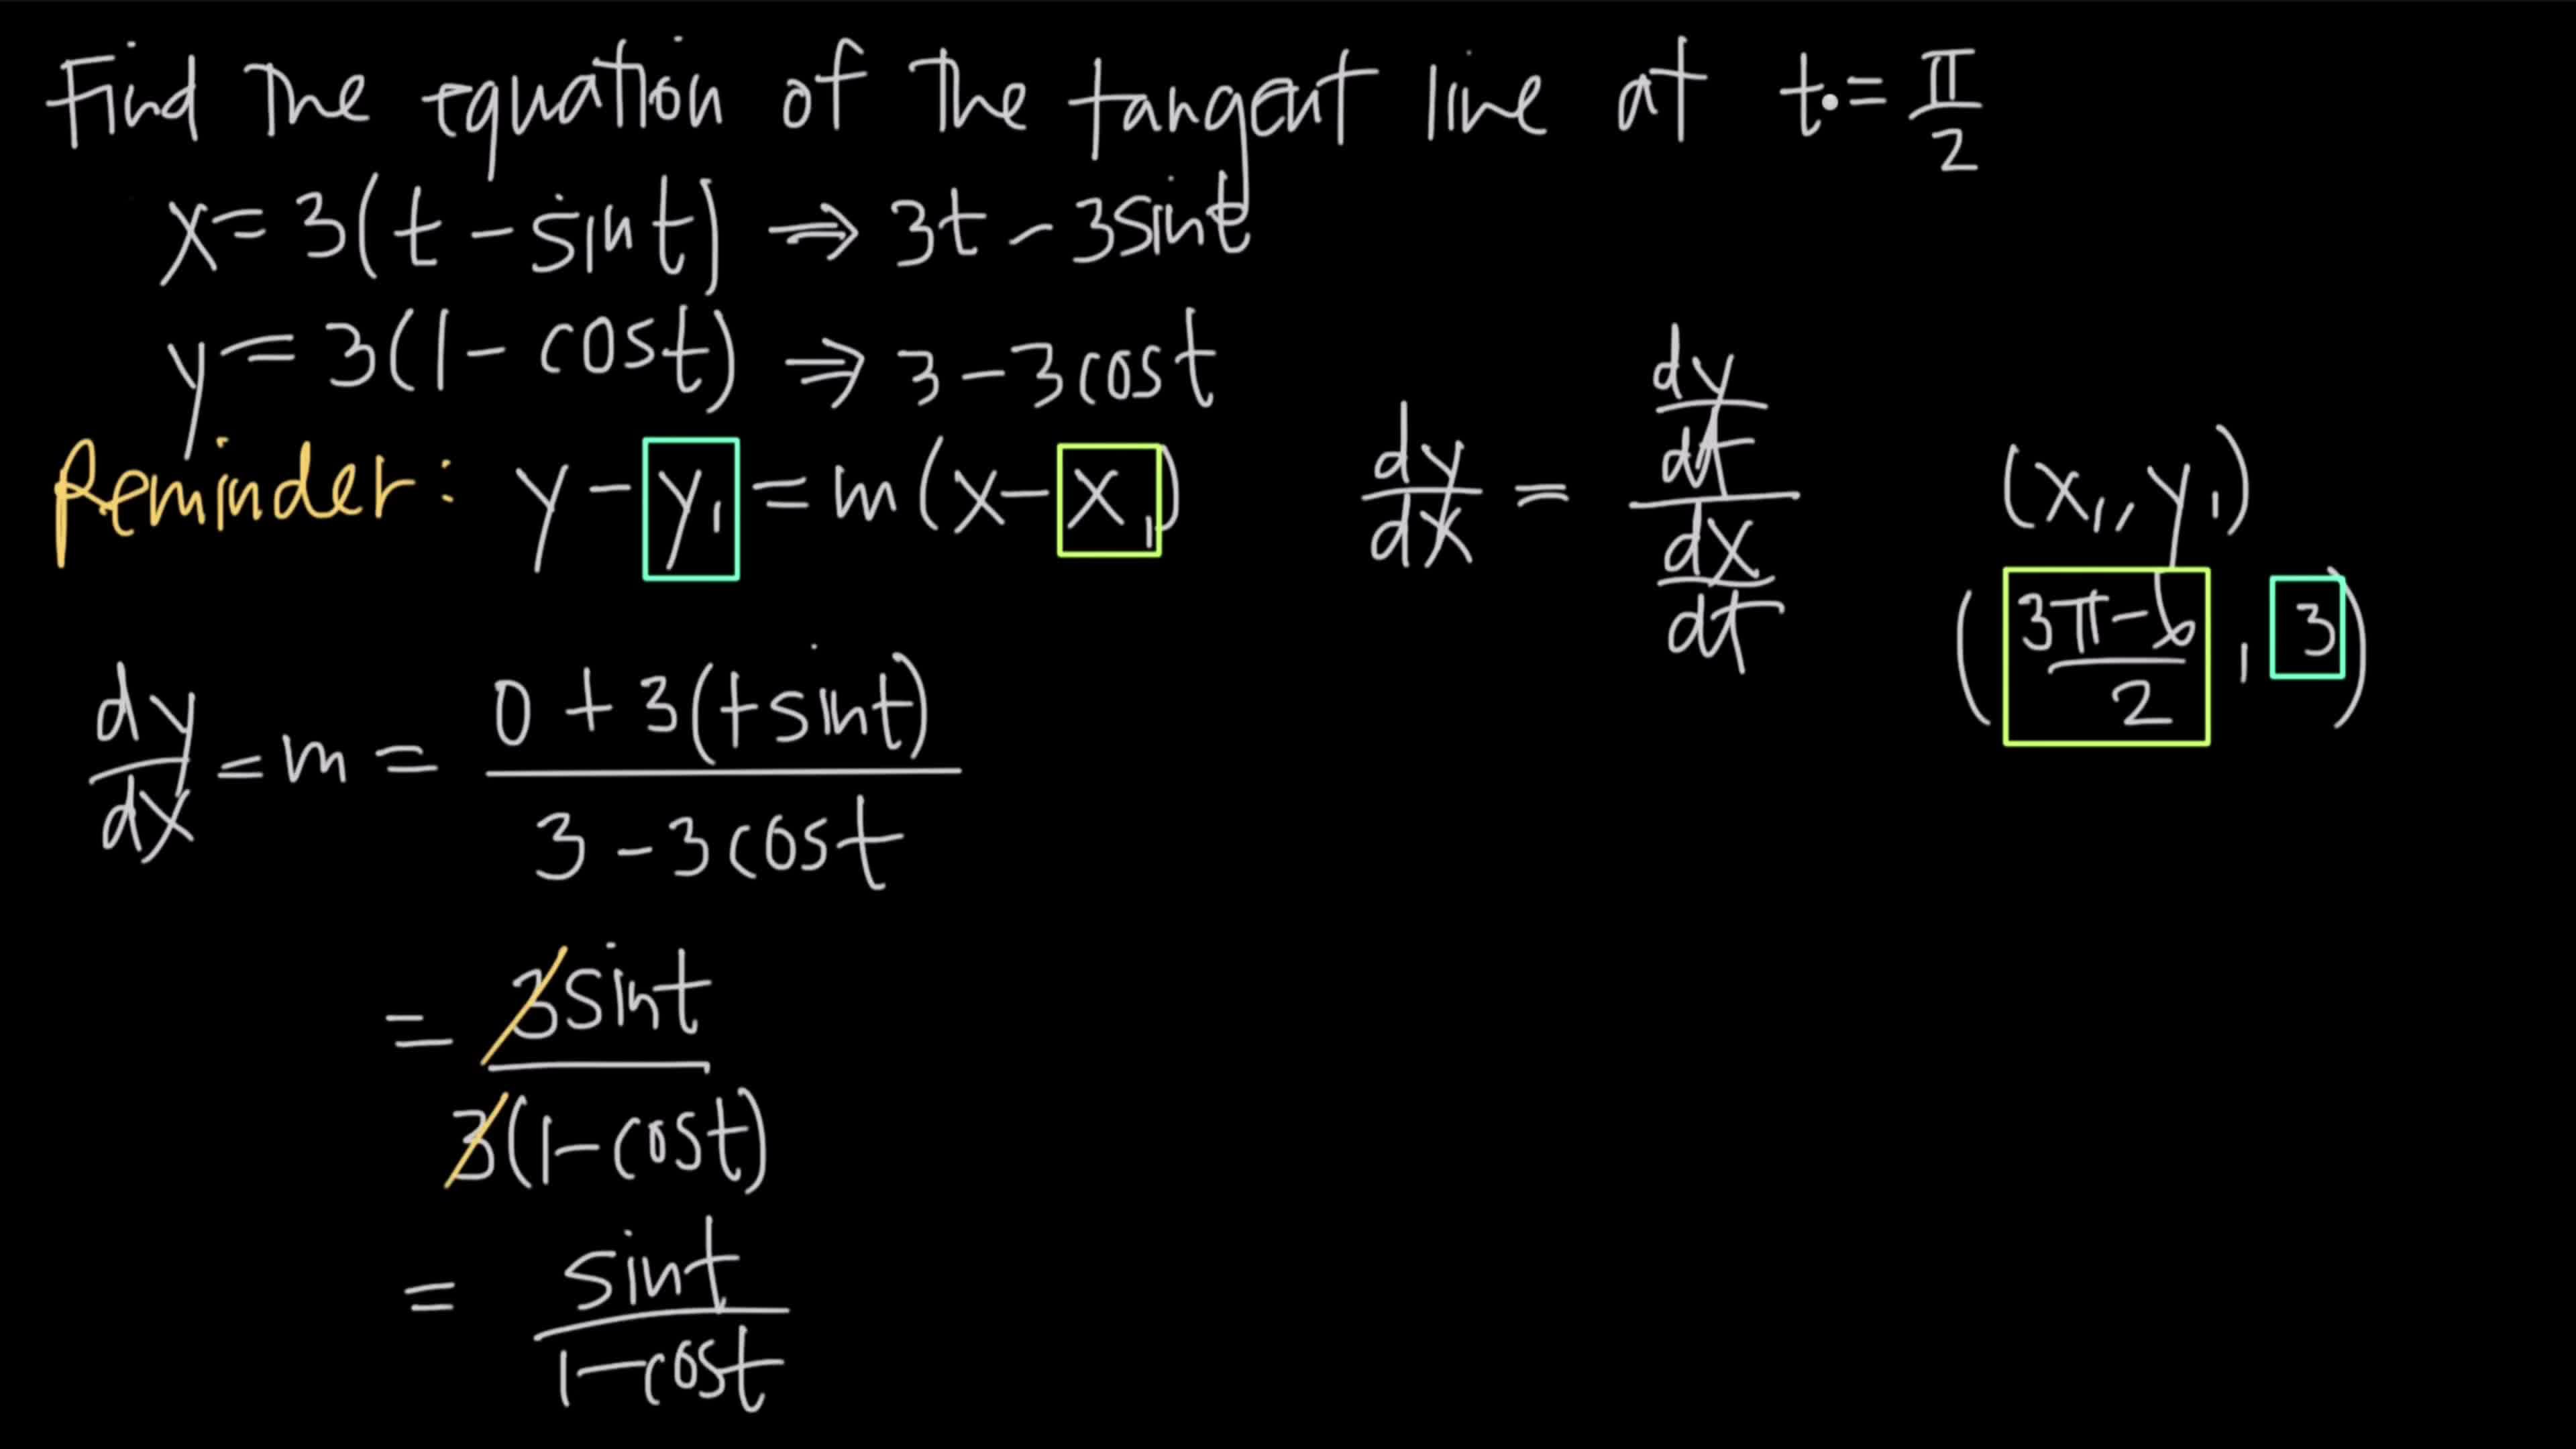 Find the equation of the tangent line at t = π/2
x = 3(t - sint) ⇒ 3t - 3sint
y = 3(1 - cost) ⇒ 3 - 3cost
Reminder: y - y₁ = m(x - x₁)
dy/dx = (dy/dt)/(dx/dt)
(x₁, y₁)
((3π-6)/2, 3)
dy/dx = m = (0 + 3(+sint))/(3 - 3cost)
= 3sint/(3(1-cost))
= sint/(1-cost)